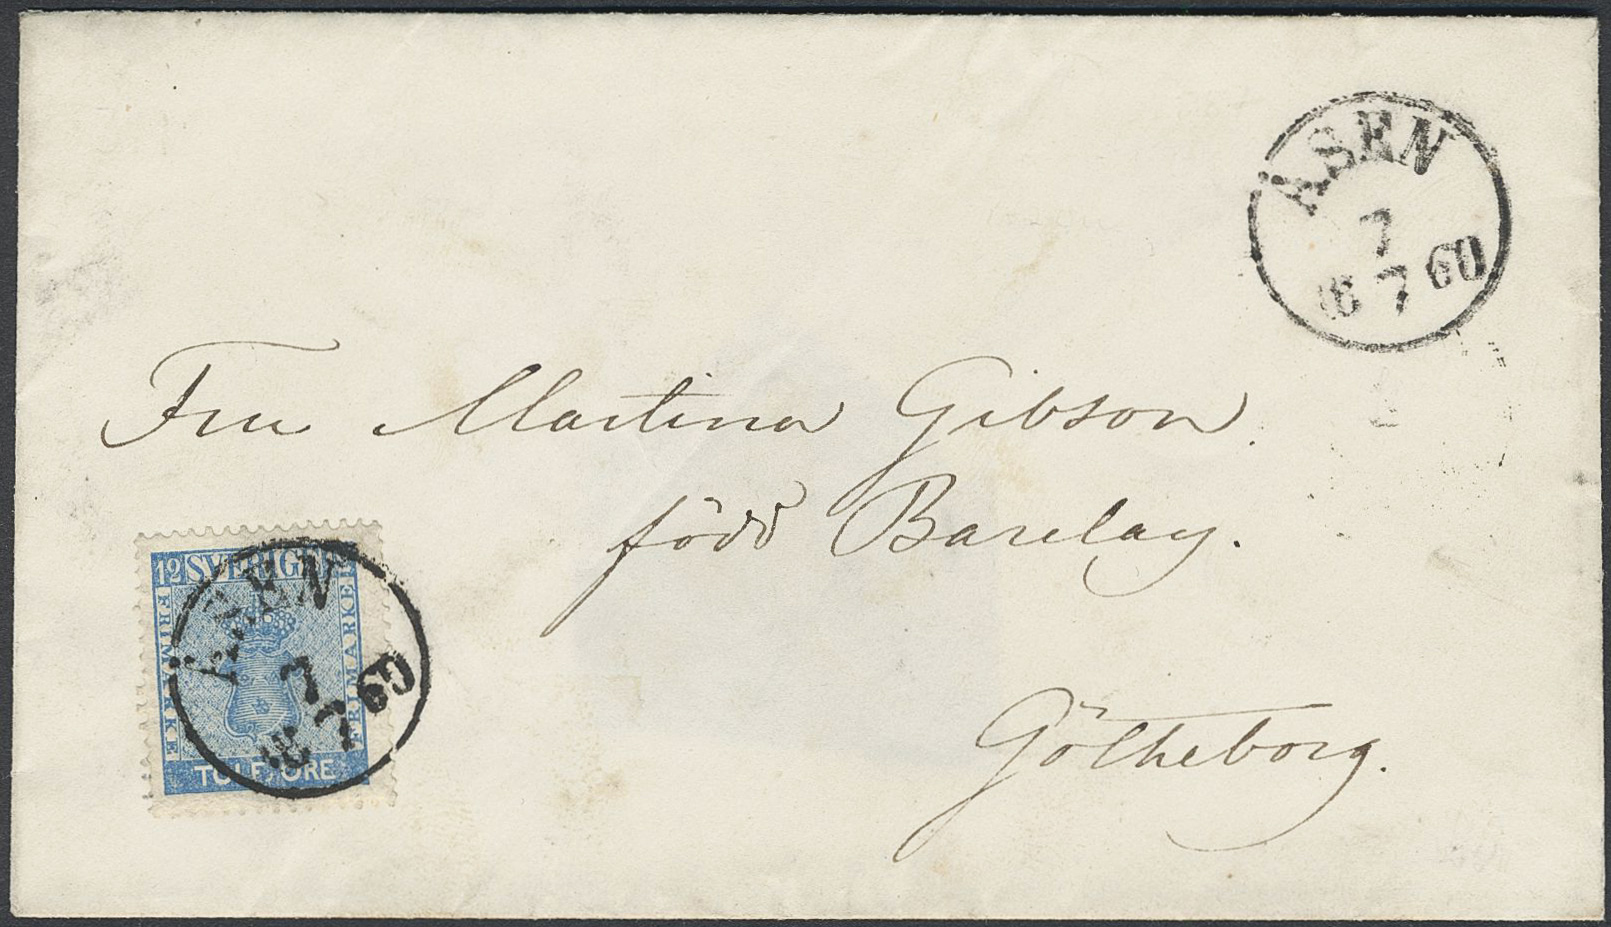 ÅSEN
7
18 7 60
Fru Martina Gibson.
född Barclay.
Götheborg.
12 SVERIGE
FRIMÄRKE
FRIMÄRKE
TOLF ÖRE
ÅSEN
7
18 7 60